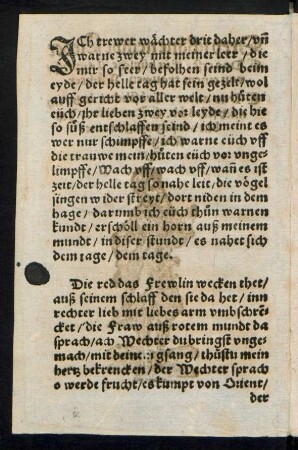 ICh trewer wächter drit daher/vñ
warne zwey mit meiner leer/die
mir so seer/befolhen seind beim
eyde/der helle tag hat sein gezelt/wol
auff gericht vor aller welt/nu hüten
eüch/jhr lieben zwey vor leyde/die hie
so süß entschlaffen seind/ich meint es
wer nur schimpffe/ich warne eüch vff
die trauwe mein/hüten eüch vor vnge-
limpffe/Wach vff/wach vff/wañ es ist
zeit/der helle tag so nahe leit/die vögel
singen wider streyt/dort niden in dem
hage/darumb ich eüch thün warnen
kundt/erschöll ein horn auß meinem
mundt/in diser stundt/es nahet sich
dem tage/dem tage.
Die red das Frewlin wecken thet/
auß seinem schlaff den sie da het/inn
rechter lieb mit liebes arm vmbschrē-
cket/die Fraw auß rotem mundt da
sprach/ach Wechter du bringst vnge-
mach/mit deinem gsang/thüstu mein
hertz bekrencken/der Wechter sprach
o werde frucht/es kumpt von Orient/
der